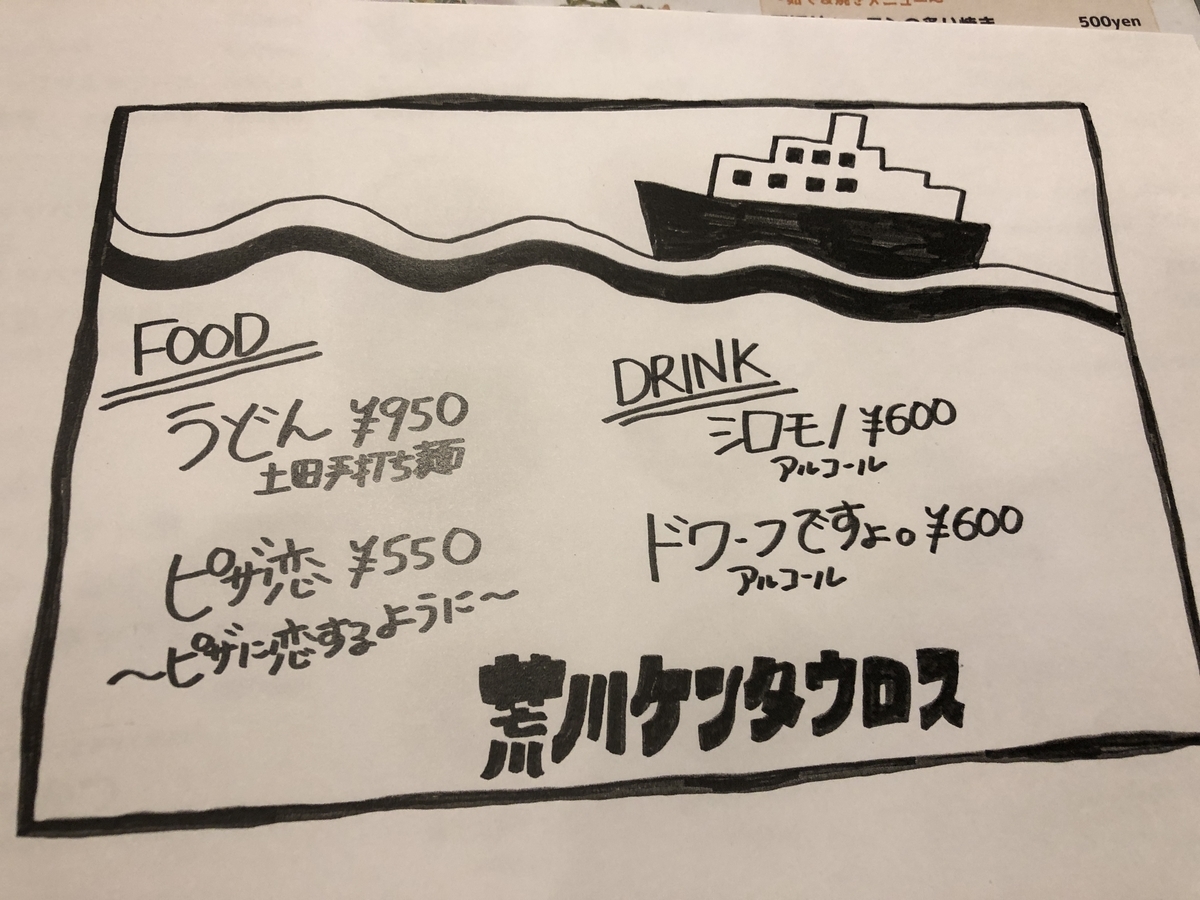 500yen
FOOD
うどん ¥950
土田手打ち麺
ピザ恋 ¥550
〜ピザに恋するように〜
DRINK
シロモノ ¥600
アルコール
ドワーフですよ。¥600
アルコール
荒川ケンタウロス